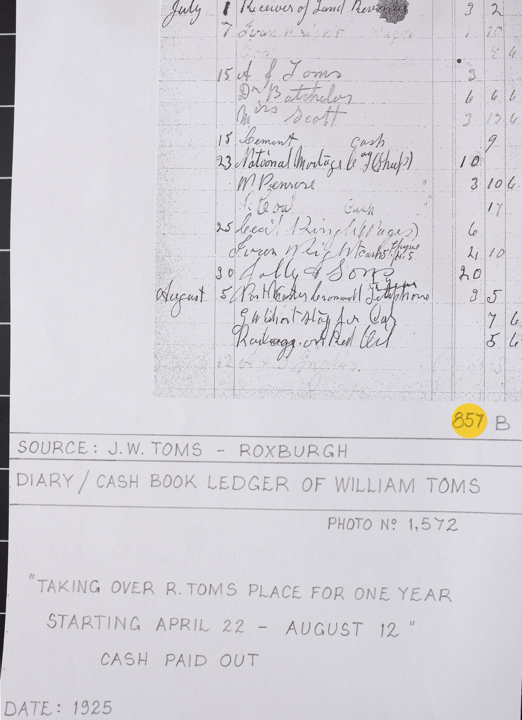 July 1 Receiver of Land Revenue 3 2
7
15 A J Toms 3
Dr Batchelor 6 6 6
Mrs Scott 3 13 6
15 Cement cash 9
23 National Mortage & ag (Shup) 10
M Penrose 3 10 6
Cash 17
25 Cecil King (Wages) 6
Ivan Wright cash 4 10
30 Jolly & Sons 20
August 5 Post Master Cromwell Telephone 3 5
for Car 7 6
Railage on Red Oil 5 6
12
857 B
SOURCE: J.W. TOMS - ROXBURGH
DIARY / CASH BOOK LEDGER OF WILLIAM TOMS
PHOTO Nº 1,572
"TAKING OVER R. TOMS PLACE FOR ONE YEAR
STARTING APRIL 22 - AUGUST 12"
CASH PAID OUT
DATE: 1925